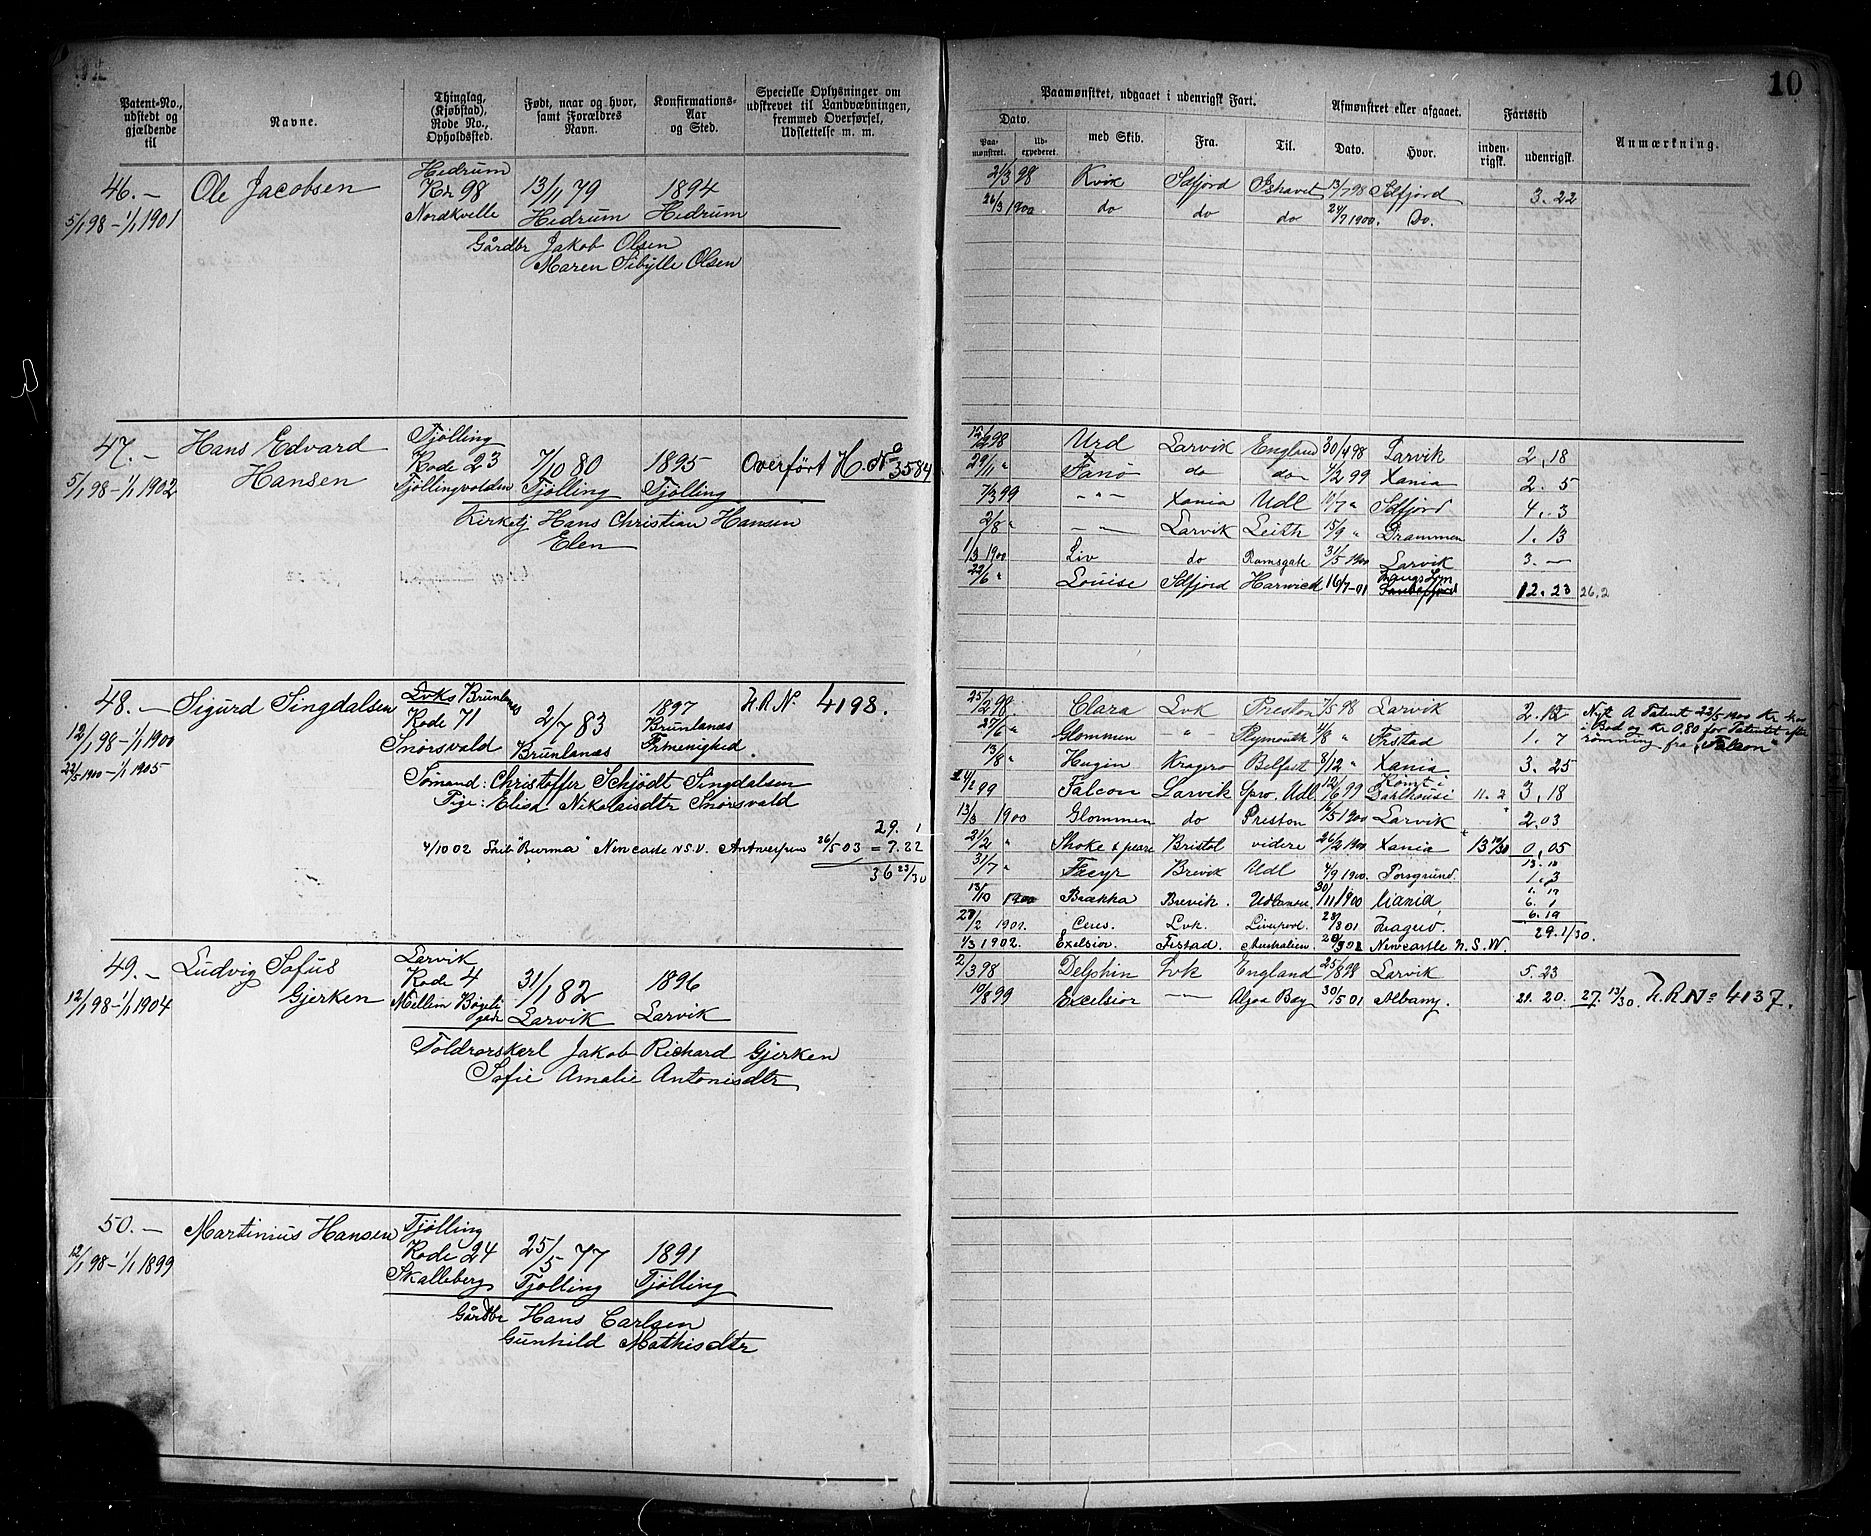 10
Patent-No., udstedt og gjældende til
Navne.
Thinglag, (Kjøbstad), Rode No., Opholdssted.
Født, naar og hvor, samt Forældres Navn.
Konfirmations-Aar og Sted.
Specielle Oplysninger om udskrevet til Landvæbningen, fremmed Overførsel, Udslettelse m. m.
Paamønstret, udgaaet i udenrigsk Fart.
Afmønstret eller afgaaet.
Fartstid
Dato. med Skib. Fra. Til. Dato. Hvor. inden-rigsk. udenrigsk. Anmærkning.
Paa-mønstret. Ud-expederet.
46. — Ole Jacobsen Hedrum
Rd. 98 13/11 79 1894
5/1 98 - 1/1 1901 Nordkvelle Hedrum Hedrum
Gårdbr Jakob Olsen
Maren Sibylle Olsen
2/3 98 Kvik Sdfjord Ishavet 13/7 98 Sdfjord 3. 22
26/3 1900 do do do 24/7 1900. Do.
47. — Hans Edvard Hansen Tjølling
Rode 23 7/10 80 1895 Overført H. No 3584
5/1 98 - 1/1 1902 Tjøllingvolden Tjølling Tjølling
Kirketj Hans Christian Hansen
Elen
12/2 98 Urd Larvik England 30/4 98 Larvik 2. 18
29/11 " Fanø do do 7/2 99 Xania 2. 5
7/3 99 — " — Xania Udl 17/7 " Sdfjord 4. 3
2/8 " — " — Larvik Leith 15/9 " Drammen 1. 13
1/3 1900 Liv do Ramsgate 31/5 1900 Larvik 3. —
22/6 " Louise Sdfjord Harwich 16/7-01 Sandefjord 12. 23 26.2
48. — Sigurd Singdalsen Lvks Brunlanes
Rode 71 2/7 83 1897 H.R.No 4198.
12/1 98 - 1/1 1900 Snørsvald Brunlanes Brunlanes Frimenighed
22/5 1900 - 1/1 1905
Sømand: Christoffer Schjødt Singdalsen
Pige: Elisa Nikolaisdtr Snørsvald
29. 1
4/10 02 Skib "Burma" Newcastle N.S.V. Antwerpen 26/5 03 = 7. 22
36 23/30
25/2 98. Clara Lvk Preston 7/5 98 Larvik 2. 12
27/6 " Glommen — " — Plymouth 11/8 " Frstad 1. 7
13/8 " Hugin Kragerø Belfast 8/12 " Xania 3. 25
99 Falcon Larvik Spro. Udl. 12/6 99 Rømt Dahlhousi 11. 2 3. 18
13/3 1900 Glommen do Preston 16/5 1900 Larvik 2. 03
21/2 " Bristol videre 26/2 1900 Xania 13 0. 05
31/7 " Brevik Udl 4/9 1900. Porsgrund. 1. 3
13/10 1900 Brækka Brevik. Udlandet 30/11 1900 Xania 6. 1
6. 19
27/2 1901. Ceres. Lvk. Liverpool. 28/8 01 Kragerø. 29. 1/30.
1/3 1902. Excelsior. Frstad. Australien Newcastle N. S. W.
Nyt A Patent 22/5 1900 Kr
i Bod og Kr 0,80 for Patentet efter
rømning fra "Falcon"
49. — Ludvig Sofus Gjerken Larvik
Rode 4 31/1 82 1896
12/1 98 - 1/1 1904 Mellem Bøgeli gade Larvik Larvik
Toldrorskarl Jakob Richard Gjerken
Sofie Amalie Antonisdtr
2/3 98 Delphin Lvk England 25/8 98 Larvik 5. 23
10/8 99 Excelsior — " — Algoa Bay 30/5 01 Albany. 21. 20. 27. 13/30. H.R.No 4137.
50. — Martinius Hansen Tjølling
Rode 24 25/5 77 1891
12/1 98 - 1/1 1899 Skalleberg Tjølling Tjølling
Gårdbr Hans Carlsen
Gunhild Mathisdtr